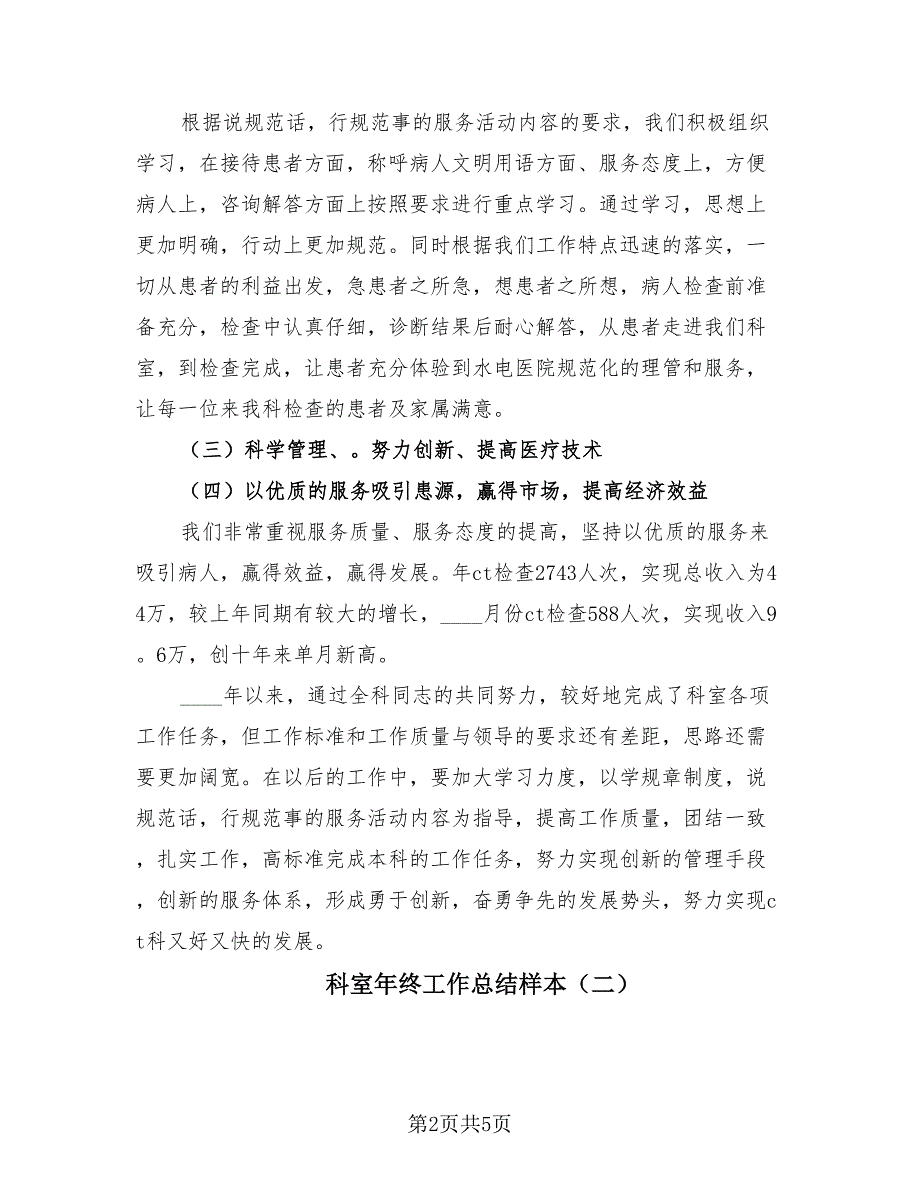 根据说规范话，行规范事的服务活动内容的要求，我们积极组织
学习，在接待患者方面，称呼病人文明用语方面、服务态度上，方便
病人上，咨询解答方面上按照要求进行重点学习。通过学习，思想上
更加明确，行动上更加规范。同时根据我们工作特点迅速的落实，一
切从患者的利益出发，急患者之所急，想患者之所想，病人检查前准
备充分，检查中认真仔细，诊断结果后耐心解答，从患者走进我们科
室，到检查完成，让患者充分体验到水电医院规范化的理管和服务，
让每一位来我科检查的患者及家属满意。
（三）科学管理、。努力创新、提高医疗技术
（四）以优质的服务吸引患源，赢得市场，提高经济效益
我们非常重视服务质量、服务态度的提高，坚持以优质的服务来
吸引病人，赢得效益，赢得发展。年ct检查2743人次，实现总收入为4
4万，较上年同期有较大的增长，____月份ct检查588人次，实现收入9
。6万，创十年来单月新高。
____年以来，通过全科同志的共同努力，较好地完成了科室各项
工作任务，但工作标准和工作质量与领导的要求还有差距，思路还需
要更加阔宽。在以后的工作中，要加大学习力度，以学规章制度，说
规范话，行规范事的服务活动内容为指导，提高工作质量，团结一致
，扎实工作，高标准完成本科的工作任务，努力实现创新的管理手段
，创新的服务体系，形成勇于创新，奋勇争先的发展势头，努力实现c
t科又好又快的发展。
科室年终工作总结样本（二）
第2页共5页